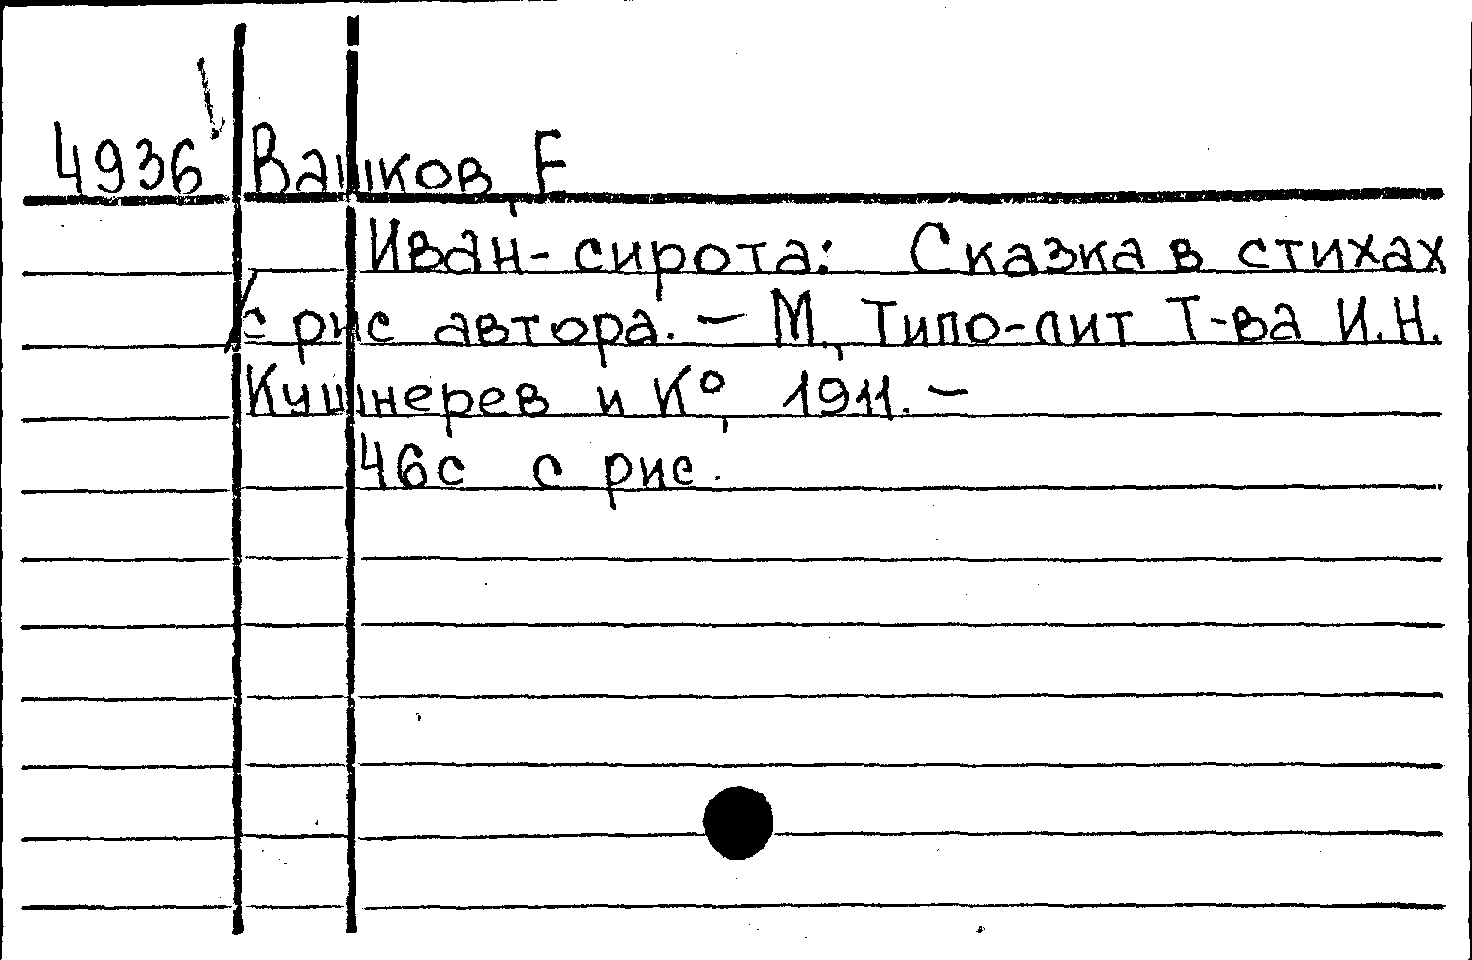 4936 Вашков, Е
Иван-сирота: Сказка в стихах
с рис автора. – М., Типо-лит Т-ва И.Н.
Кушнерев и К°, 1911. –
46с с рис.